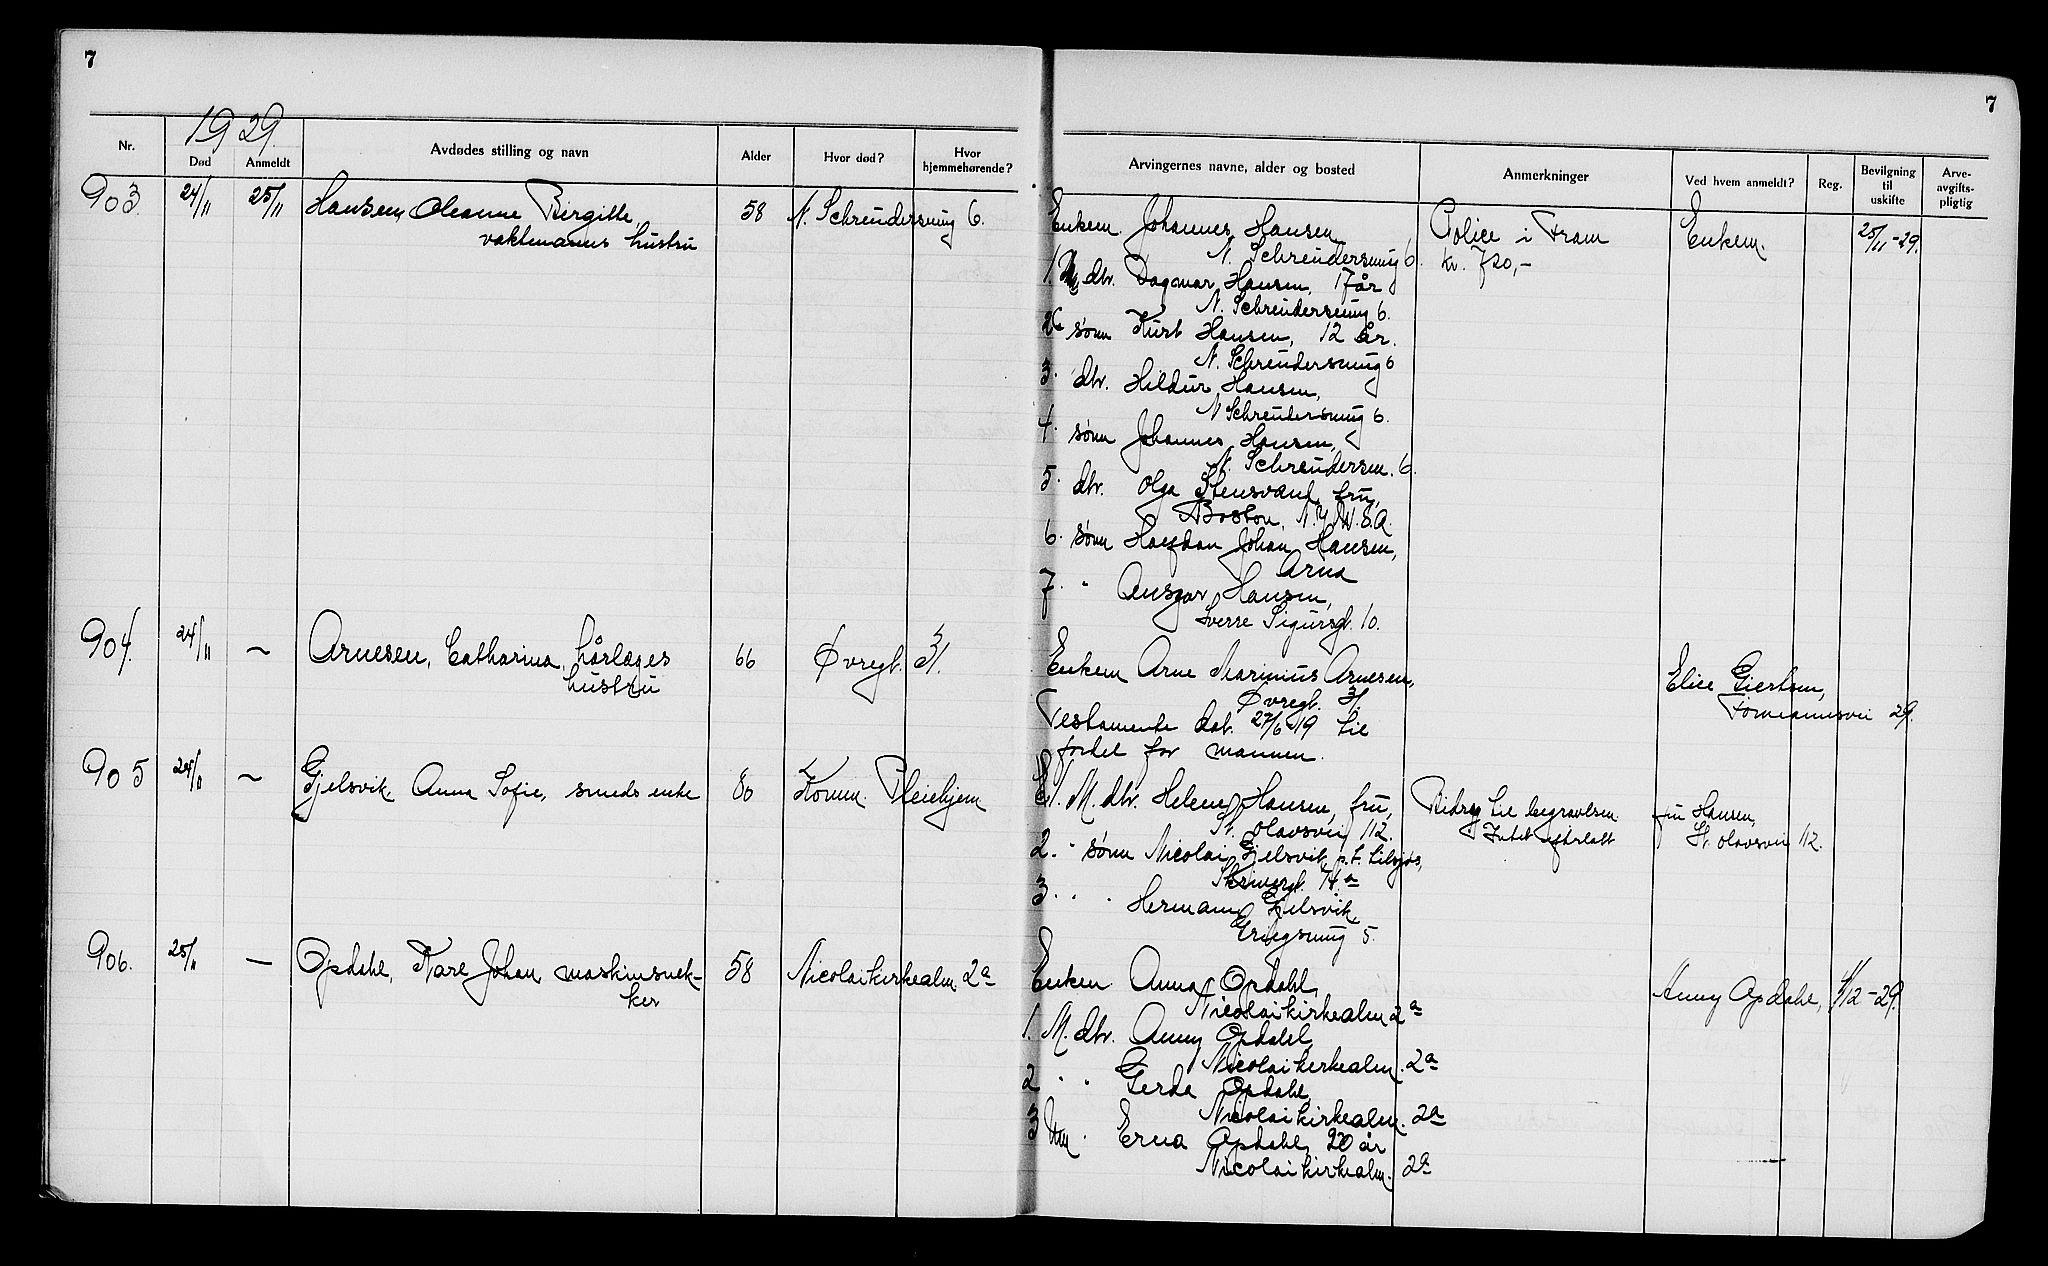 7
1929.
Nr.
Død
Anmeldt
Avdødes stilling og navn
Alder
Hvor død?
Hvor hjemmehørende?
903.
24/11
25/11
Hansen, Oleanne Birgitte,
vaktmanns hustru
58
N. Schreudersmug 6.
904.
24/11
—
Arnesen, Catharina, hårlages
hustru
66
Øvregt. 31.
905
24/11
—
Gjelsvik, Anna Sofie, smeds enke
80
Komm. Pleiehjem
906.
25/11
—
Opdahl, Karl Johan, maskinsnek-
ker
58
Nicolaikirkealm. 2a
7
Arvingernes navne, alder og bosted
Anmerkninger
Ved hvem anmeldt?
Reg.
Bevilgning til uskifte
Arve-avgifts-pligtig
Enkem. Johannes Hansen
N. Schreudersmug 6.
Police i Fram
kr. 720,-
Enkem.
25/11-29.
1. dtr. Dagmar Hansen, 17 år
N. Schreudersmug 6.
2 sønn Kurt Hansen, 12 år.
N. Schreudersmug 6
3. dtr. Hildur Hansen,
N Schreudersmug 6.
4. sønn Johannes Hansen,
N. Schreudersm. 6.
5. dtr. Olga Stensvand, fru,
Boston, N.Y. U.S.A.
6. sønn Halfdan Johan Hansen,
Arna
7. " Ansgar Hansen,
Sverre Sigursgt. 10.
Enkem Arne Marinius Arnesen,
Øvregt. 31.
Testamente dat. 27/6-19 til
fordel for mannen.
Elise
29.
1. M. dtr. Helene Hansen, fru,
St. Olavsvei 112.
Bidrag til begravelsen
Intet efterlatt
fru Hansen,
St. Olavsvei 112.
2. " sønn Nicolai Gjelsvik, p.t. tilsjøs,
Skrivergt. 14a
3. " " Hermann Gjelsvik
Griegsmug 5.
Enken Anna Opdahl,
Nicolaikirkealm 2a
Anny Opdahl,
/12-29.
1. M. dtr. Anny Opdahl,
Nicolaikirkealm. 2a
2 " " Gerda Opdahl,
Nicolaikirkealm. 2a
3 Um " Erna Opdahl, 20 år
Nicolaikirkealm. 2a